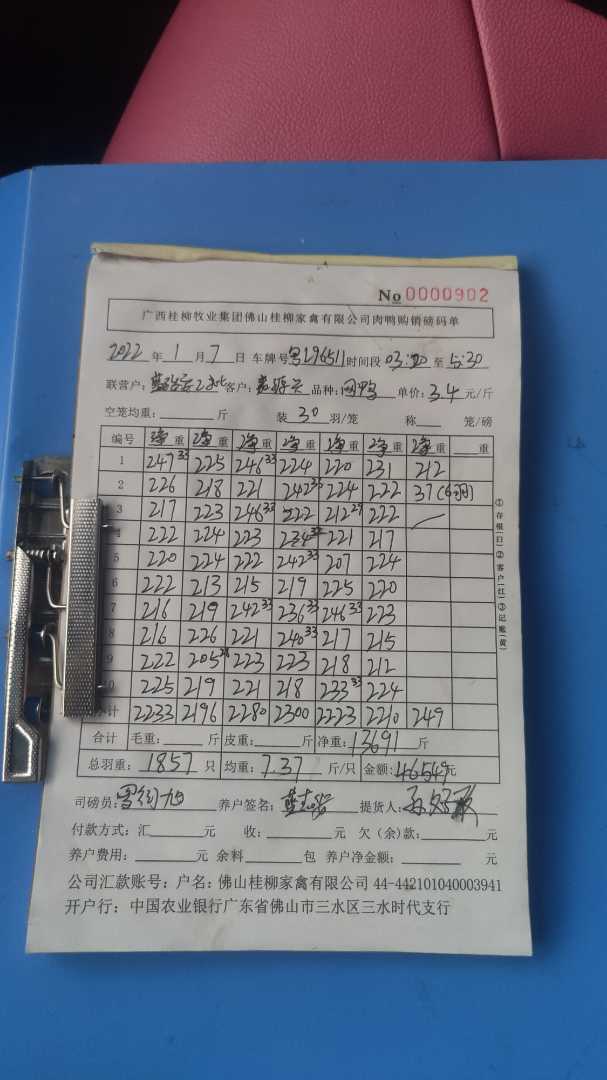 No 0000902
广西桂柳牧业集团佛山桂柳家禽有限公司肉鸭购销磅码单
2022 年 1 月 7 日 车牌号 粤L96511 时间段 03:20 至 5:30
联营户: 客户: 品种: 单价: 3.4 元/斤
空笼均重: 斤 装 30 羽/笼 称 笼/磅
编号 净重 净重 净重 净重 净重 净重 净重 重
1 247 33 225 246 33 224 220 231 212
2 226 218 221 242 33 224 222 37 (6羽)
3 217 223 246 33 222 212 29 222
4 222 224 223 234 221 217
5 220 224 222 242 33 207 224
6 222 213 215 219 225 220
7 216 219 242 33 236 33 246 33 223
8 216 226 221 240 33 217 215
9 222 205 223 223 218 212
10 225 219 221 218 233 33 224
小计 2233 2196 2280 2300 2223 2210 249
合计 毛重: 斤 皮重: 斤 净重: 13691 斤
总羽重: 1857 只 均重: 7.37 斤/只 金额: 46549 元
司磅员: 养户签名: 提货人:
付款方式: 汇 元 收: 元 欠(余)款: 元
养户费用: 元 余料 包 养户净金额: 元
公司汇款账号: 户名: 佛山桂柳家禽有限公司 44-442101040003941
开户行: 中国农业银行广东省佛山市三水区三水时代支行
①存根(白)②客户(红)③记账(黄)